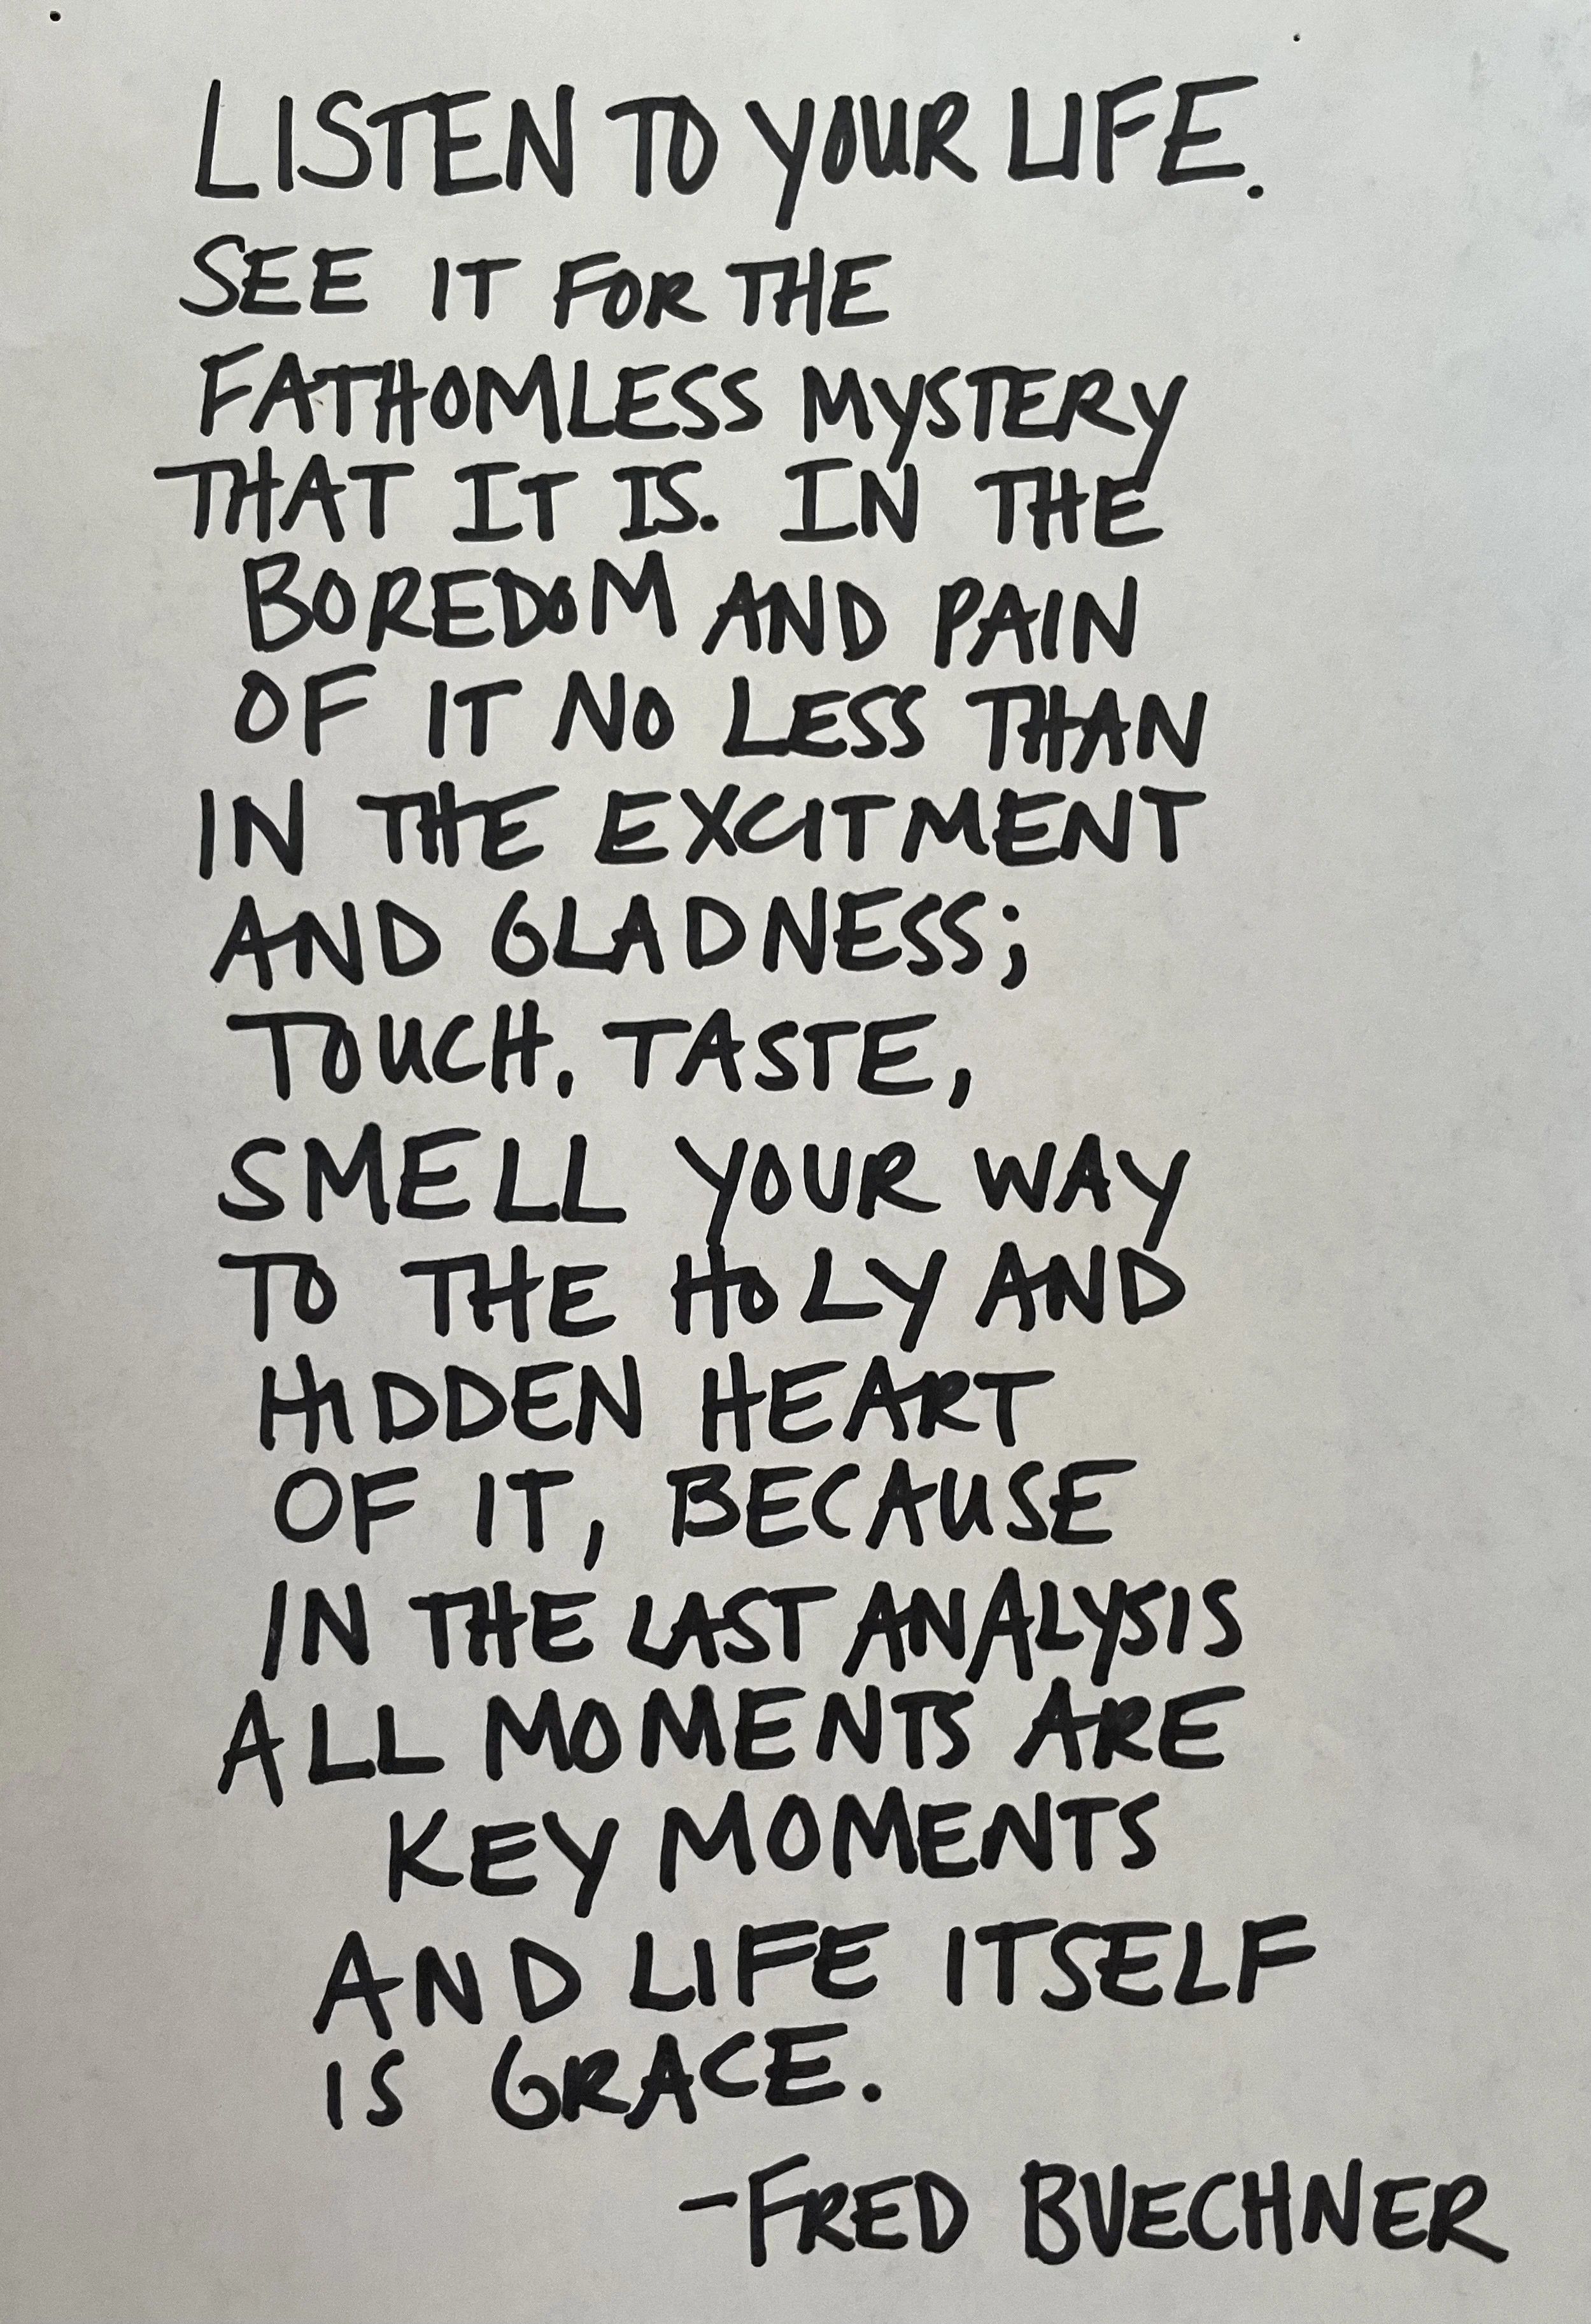 LISTEN TO YOUR LIFE.
SEE IT FOR THE
FATHOMLESS MYSTERY
THAT IT IS. IN THE
BOREDOM AND PAIN
OF IT NO LESS THAN
IN THE EXCITMENT
AND GLADNESS;
TOUCH, TASTE,
SMELL YOUR WAY
TO THE HOLY AND
HIDDEN HEART
OF IT, BECAUSE
IN THE LAST ANALYSIS
ALL MOMENTS ARE
KEY MOMENTS
AND LIFE ITSELF
IS GRACE.
-FRED BUECHNER